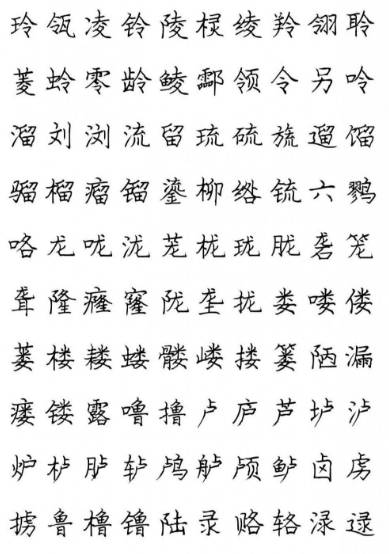 玲瓴凌铃陵棂绫羚翎聆
菱蛉零龄鲮酃领令另呤
溜刘浏流留琉硫旒遛馏
骝榴瘤镏鎏柳绺锍六鹨
咯龙咙泷茏栊珑胧砻笼
聋隆癃窿陇垄拢娄喽偻
蒌楼耧蝼髅嵝搂篓陋漏
瘘镂露噜撸卢庐芦垆泸
炉栌胪轳鸬舻颅鲈卤虏
掳鲁橹镥陆录赂辂渌逯